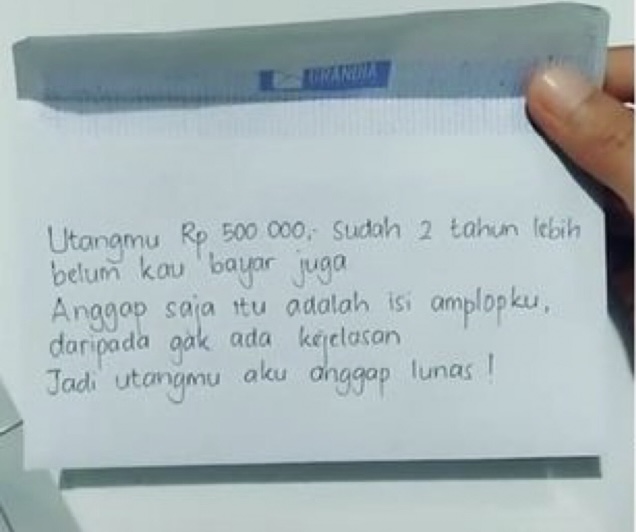 GRANDIA
Utangmu Rp 500 000,- Sudah 2 tahun lebih
belum kau bayar juga
Anggap saja itu adalah isi amplopku,
daripada gak ada kejelasan
Jadi utangmu aku anggap lunas !